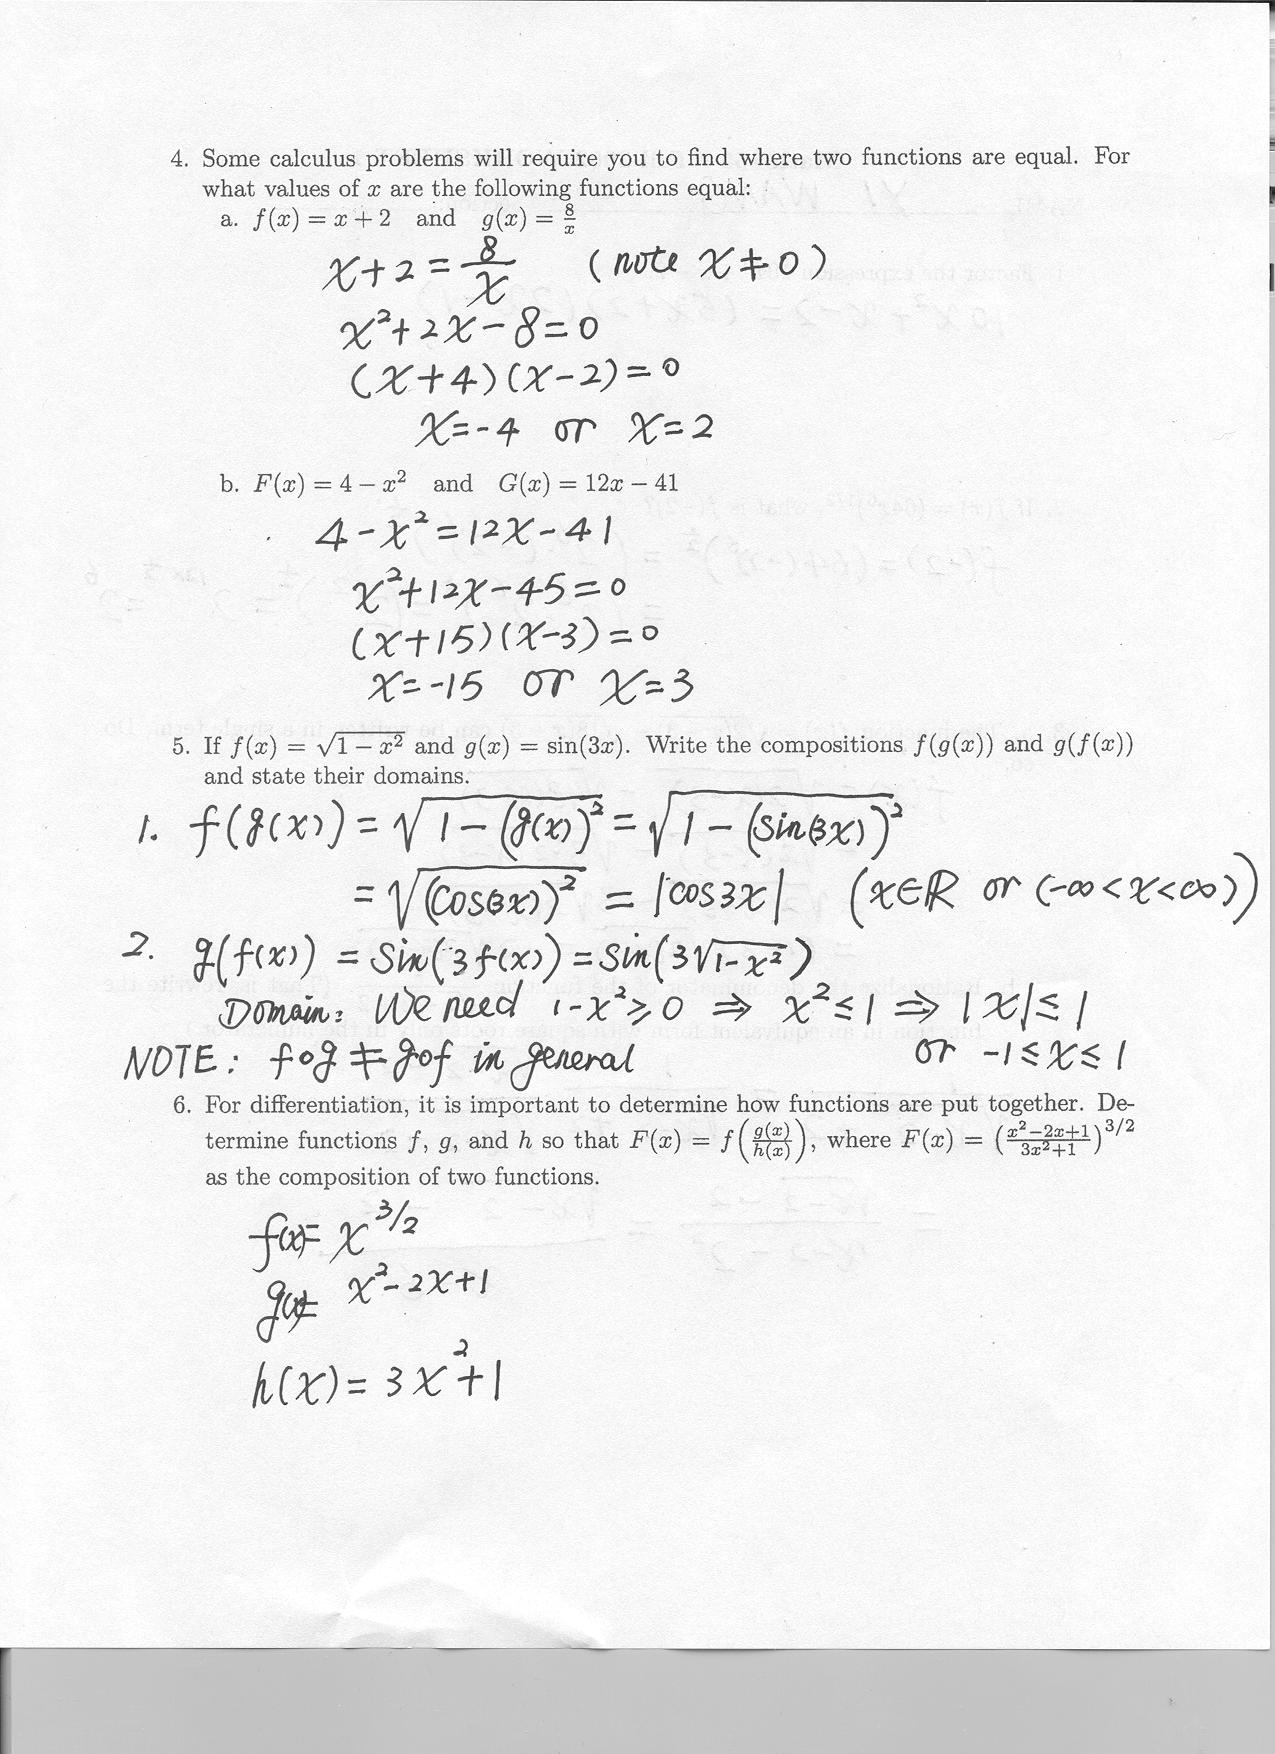 4. Some calculus problems will require you to find where two functions are equal. For
what values of x are the following functions equal:
a. f(x) = x + 2 and g(x) = 8/x
x+2 = 8/x (note x≠0)
x²+2x-8=0
(x+4)(x-2)=0
x=-4 or x=2
b. F(x) = 4 − x² and G(x) = 12x − 41
4-x²=12x-41
x²+12x-45=0
(x+15)(x-3)=0
x=-15 or x=3
5. If f(x) = √(1 − x²) and g(x) = sin(3x). Write the compositions f(g(x)) and g(f(x))
and state their domains.
1. f(g(x)) = √(1-(g(x))²) = √(1-(sin(3x))²)
= √((cos(3x))²) = |cos3x| (x∈ℝ or (-∞<x<∞))
2. g(f(x)) = sin(3f(x)) = sin(3√(1-x²))
Domain: We need 1-x²≥0 ⇒ x²≤1 ⇒ |x|≤1
NOTE: f∘g ≠ g∘f in general or -1≤x≤1
6. For differentiation, it is important to determine how functions are put together. De-
termine functions f, g, and h so that F(x) = f(g(x)/h(x)), where F(x) = ((x²−2x+1)/(3x²+1))^3/2
as the composition of two functions.
f(x)= x^3/2
g(x)= x²-2x+1
h(x)= 3x²+1